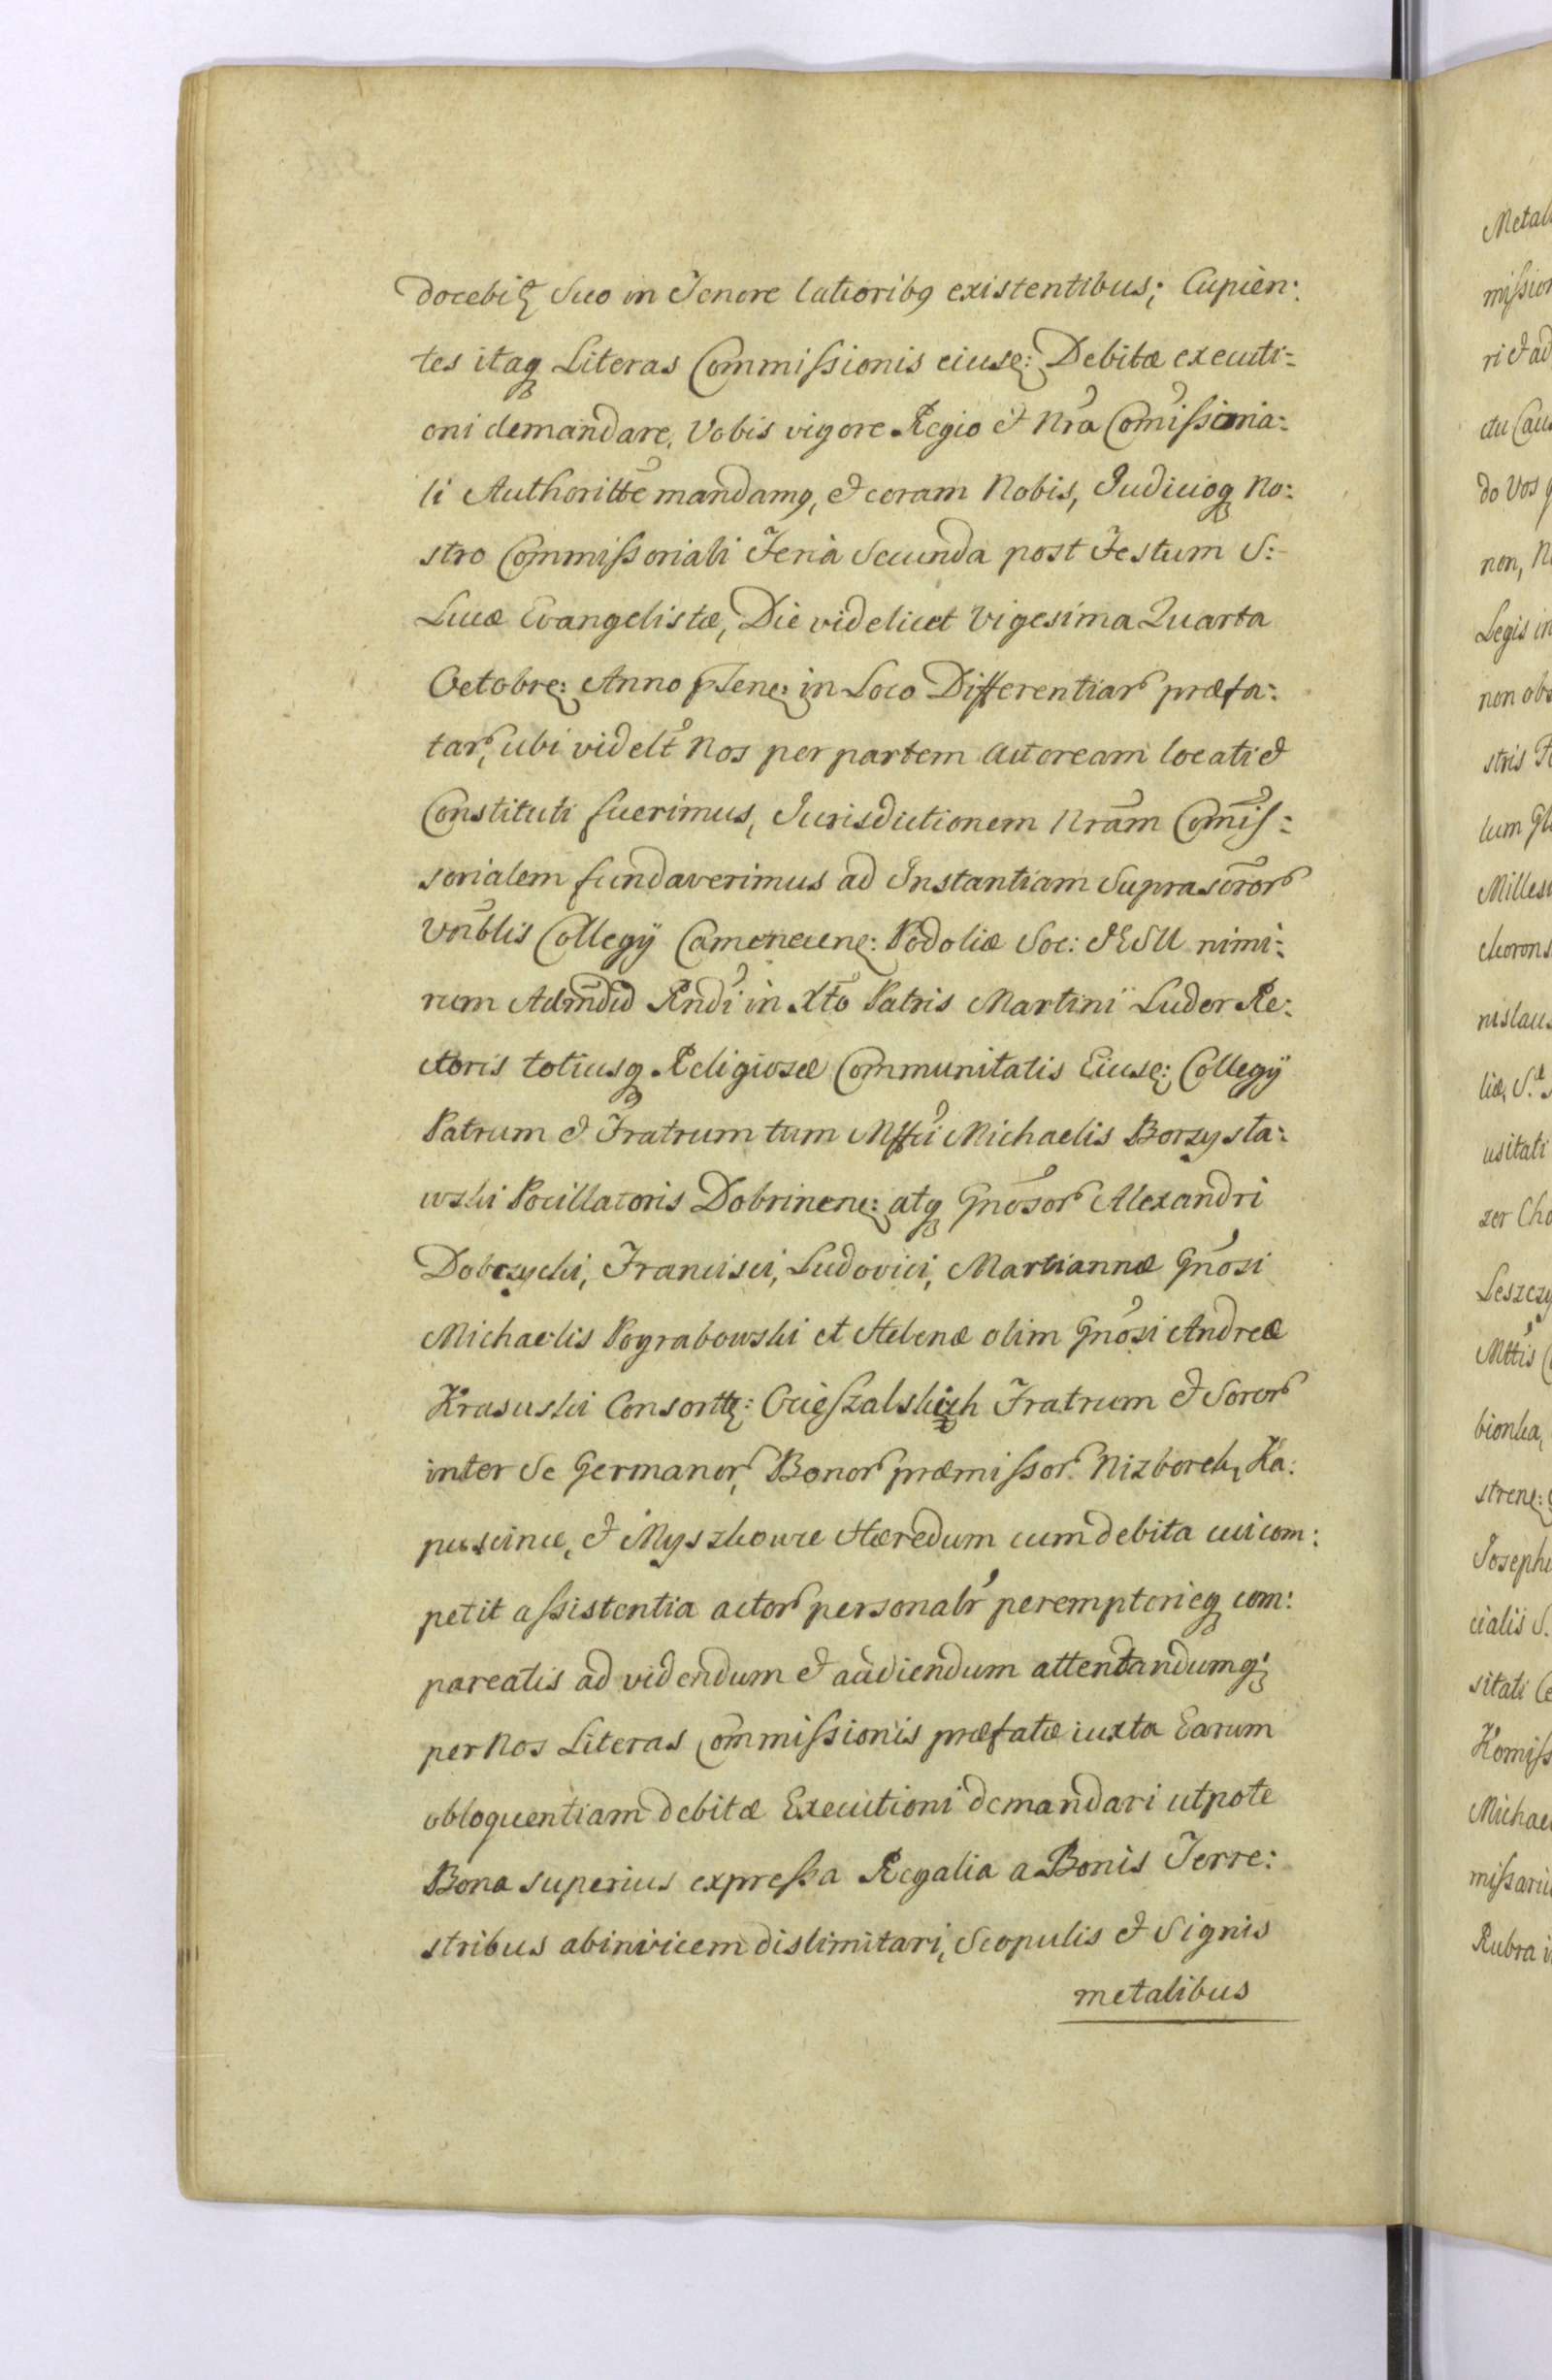 docebitꝫ Suo in Tenore latioribꝰ existentibus; Cupien:
tes itaqꝫ Literas Commißionis eiusꝫ: Debitæ executi=
oni demandare, Vobis vigore Regio et Nrã Comĩßioria:
li Authoritte mandamꝰ, et coram Nobis, Iudicioqꝫ No:
stro Commißoriali Feria Secunda post Festum S:
Lucæ Evangelistæ, Die videlicet Vigesima Quarta
Octobrꝫ: Anno pntenꝫ: in Loco Differentiarꝫ præfa:
tarꝫ, ubi videlt Nos per partem Actoream locati et
Constituti fuerimus, Iurisdictionem Nrãm Comĩs:
sorialem fundaverimus ad Instantiam Suprascrorꝫ
Vnblis Collegÿ Camenecenꝫ: Podoliæ Soc: IESU nimi:
rum Admdũ Rndi in Xto Patris Martini Ludor Re:
ctoris totiusqꝫ Religiosæ Communitatis Eiusꝫ: Collegÿ
Patrum et Fratrum tum Mffci Michaelis Borzysła:
wski Pocillatoris Dobrinenꝫ: atqꝫ Gnosorꝫ Alexandri
Dobczycki, Francisci, Ludovici, Martiannæ Gnosi
Michaelis Pograbowski et Helenæ olim Gnosi Andreæ
Krasuski Consorttꝫ: Ocießzalskich Fratrum et Sororꝫ
inter Se Germanorꝫ, Bonorꝫ præmißorꝫ Nizborek, Ka:
puscince, et Myszkowce Hæredum cum debita cui com:
petit aßistentia actorꝫ personalr peremptorieqꝫ com:
pareatis ad videndum et audiendum attentandumqꝫ
per Nos Literas Commißionis præfatæ iuxta Earum
obloquentiam debitæ Executioni demandari utpote
Bona superius expreßa Regalia a Bonis Terre:
stribus abinvicem dislimitari, Scopulis et Signis
metalibus
Metal
mißion
ri et ad
ctu Cau
do Vos
non, N
Legis in
non obs
stris
lum
Milles
chorons
nislau
liæ, S.
usitati
zer Cho
Leszczy
Mttis
bionka,
strenꝫ:
Josephi
cialis S.
sitati
Komiß
Michae
mißari
Rubra